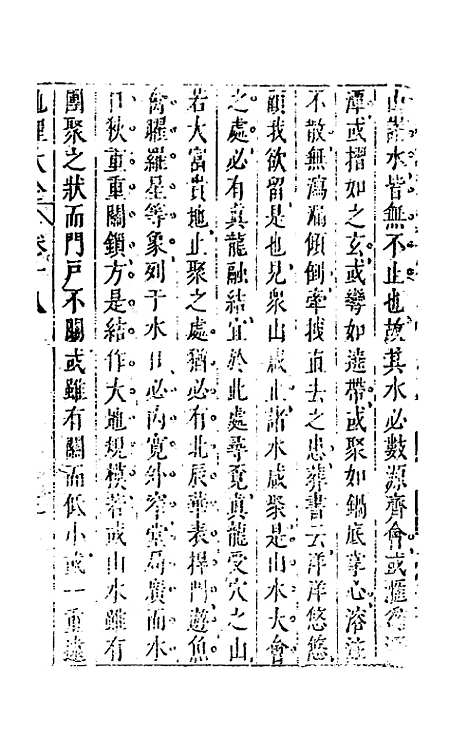 山諸水皆無不止也故其水必數源齊會或匯爲深
潭或摺如之玄或彎如遶帶或聚如鍋底掌心溶注
不散無瀉漏傾倒牽拽直去之患葬書云洋洋悠悠
顧我欲留是也見衆山咸止諸水咸聚是山水大會
之處必有真龍融結宜於此處尋覓真龍受穴之山
若大富貴地止聚之處猶必有北辰華表捍門遊魚
禽曜羅星等象列于水口必內寬外窄堂局廣而水
口狹重重關鎖方是結作大地規模若或山水雖有
團聚之狀而門戶不關或雖有關而低小或一重遠
地理大全 卷十八